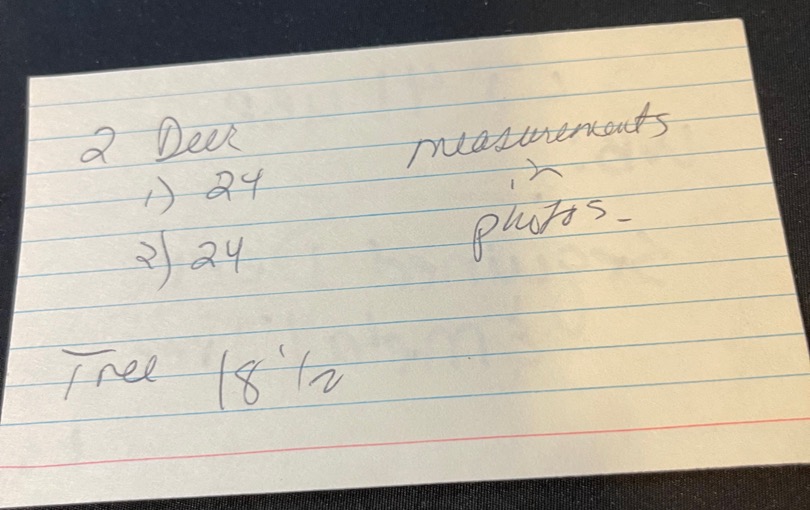 2 Deer
1) 24
2) 24
measurements
in
photos-
Tree 18 1/2